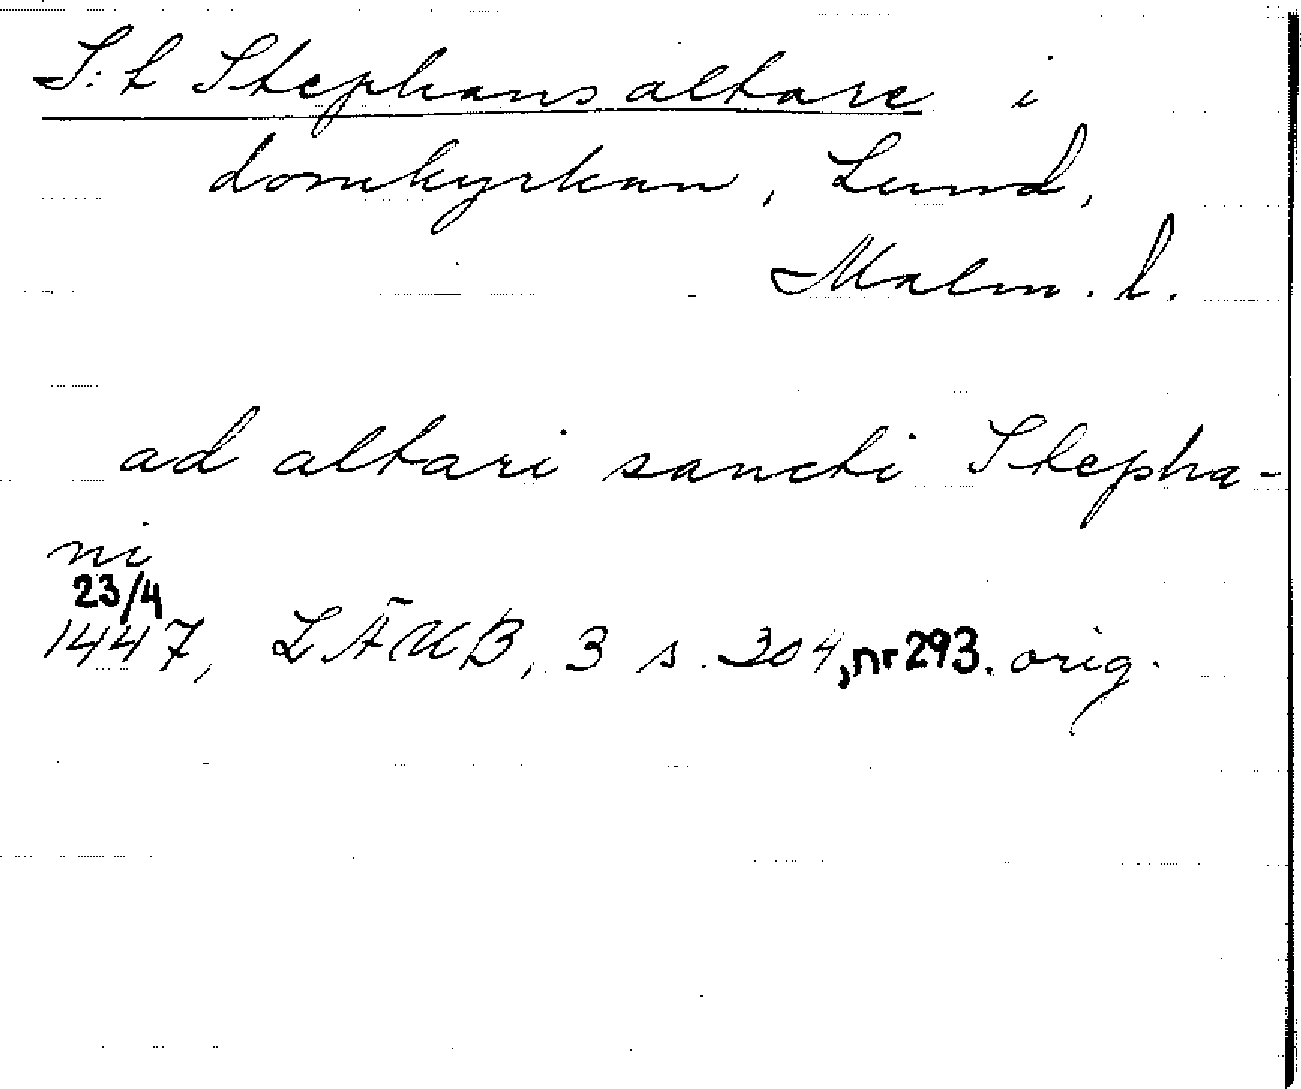 S:t Stephans altare i
domkyrkan, Lund,
Malm. l.
ad altari sancti Stepha-
ni
23/4
1447, LÄUB, 3 s. 304, nr 293. orig.